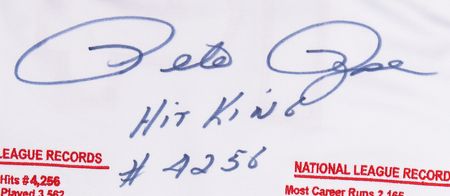 Pete Rose
Hit King
# 4256
LEAGUE RECORDS
NATIONAL LEAGUE RECORDS
Hits #4,256
Most Career Runs 2,165
Played 3,562